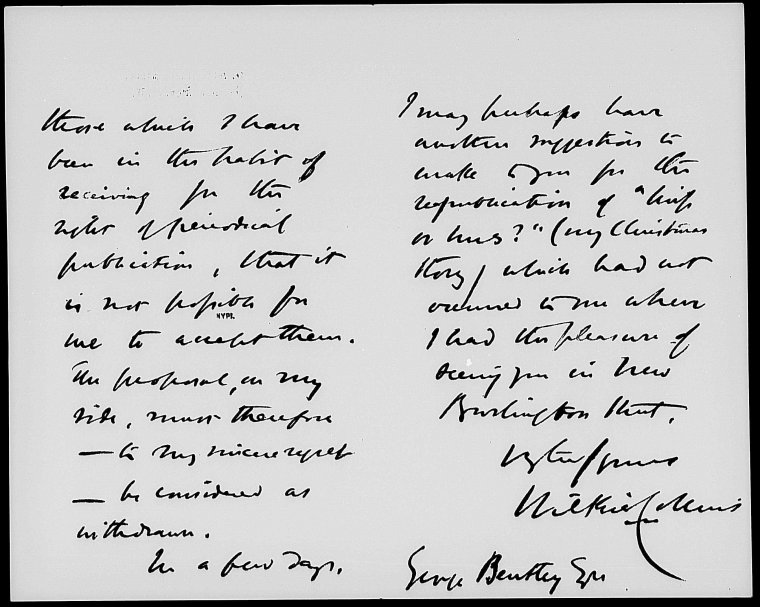 those which I have
been in the habit of
receiving for the
right of periodical
publication, that it
is not possible for
NYPL
me to accept them.
The proposal, on my
side, must therefore
— to my sincere regret
— be considered as
withdrawn.
In a few days,
I may perhaps have
another suggestion to
make to you for the
republication of "Miss
or Mrs?" (my Christmas
Story) which had not
occurred to me when
I had the pleasure of
seeing you in New
Burlington Street.
Vy truly yours
Wilkie Collins
George Bentley Esqre